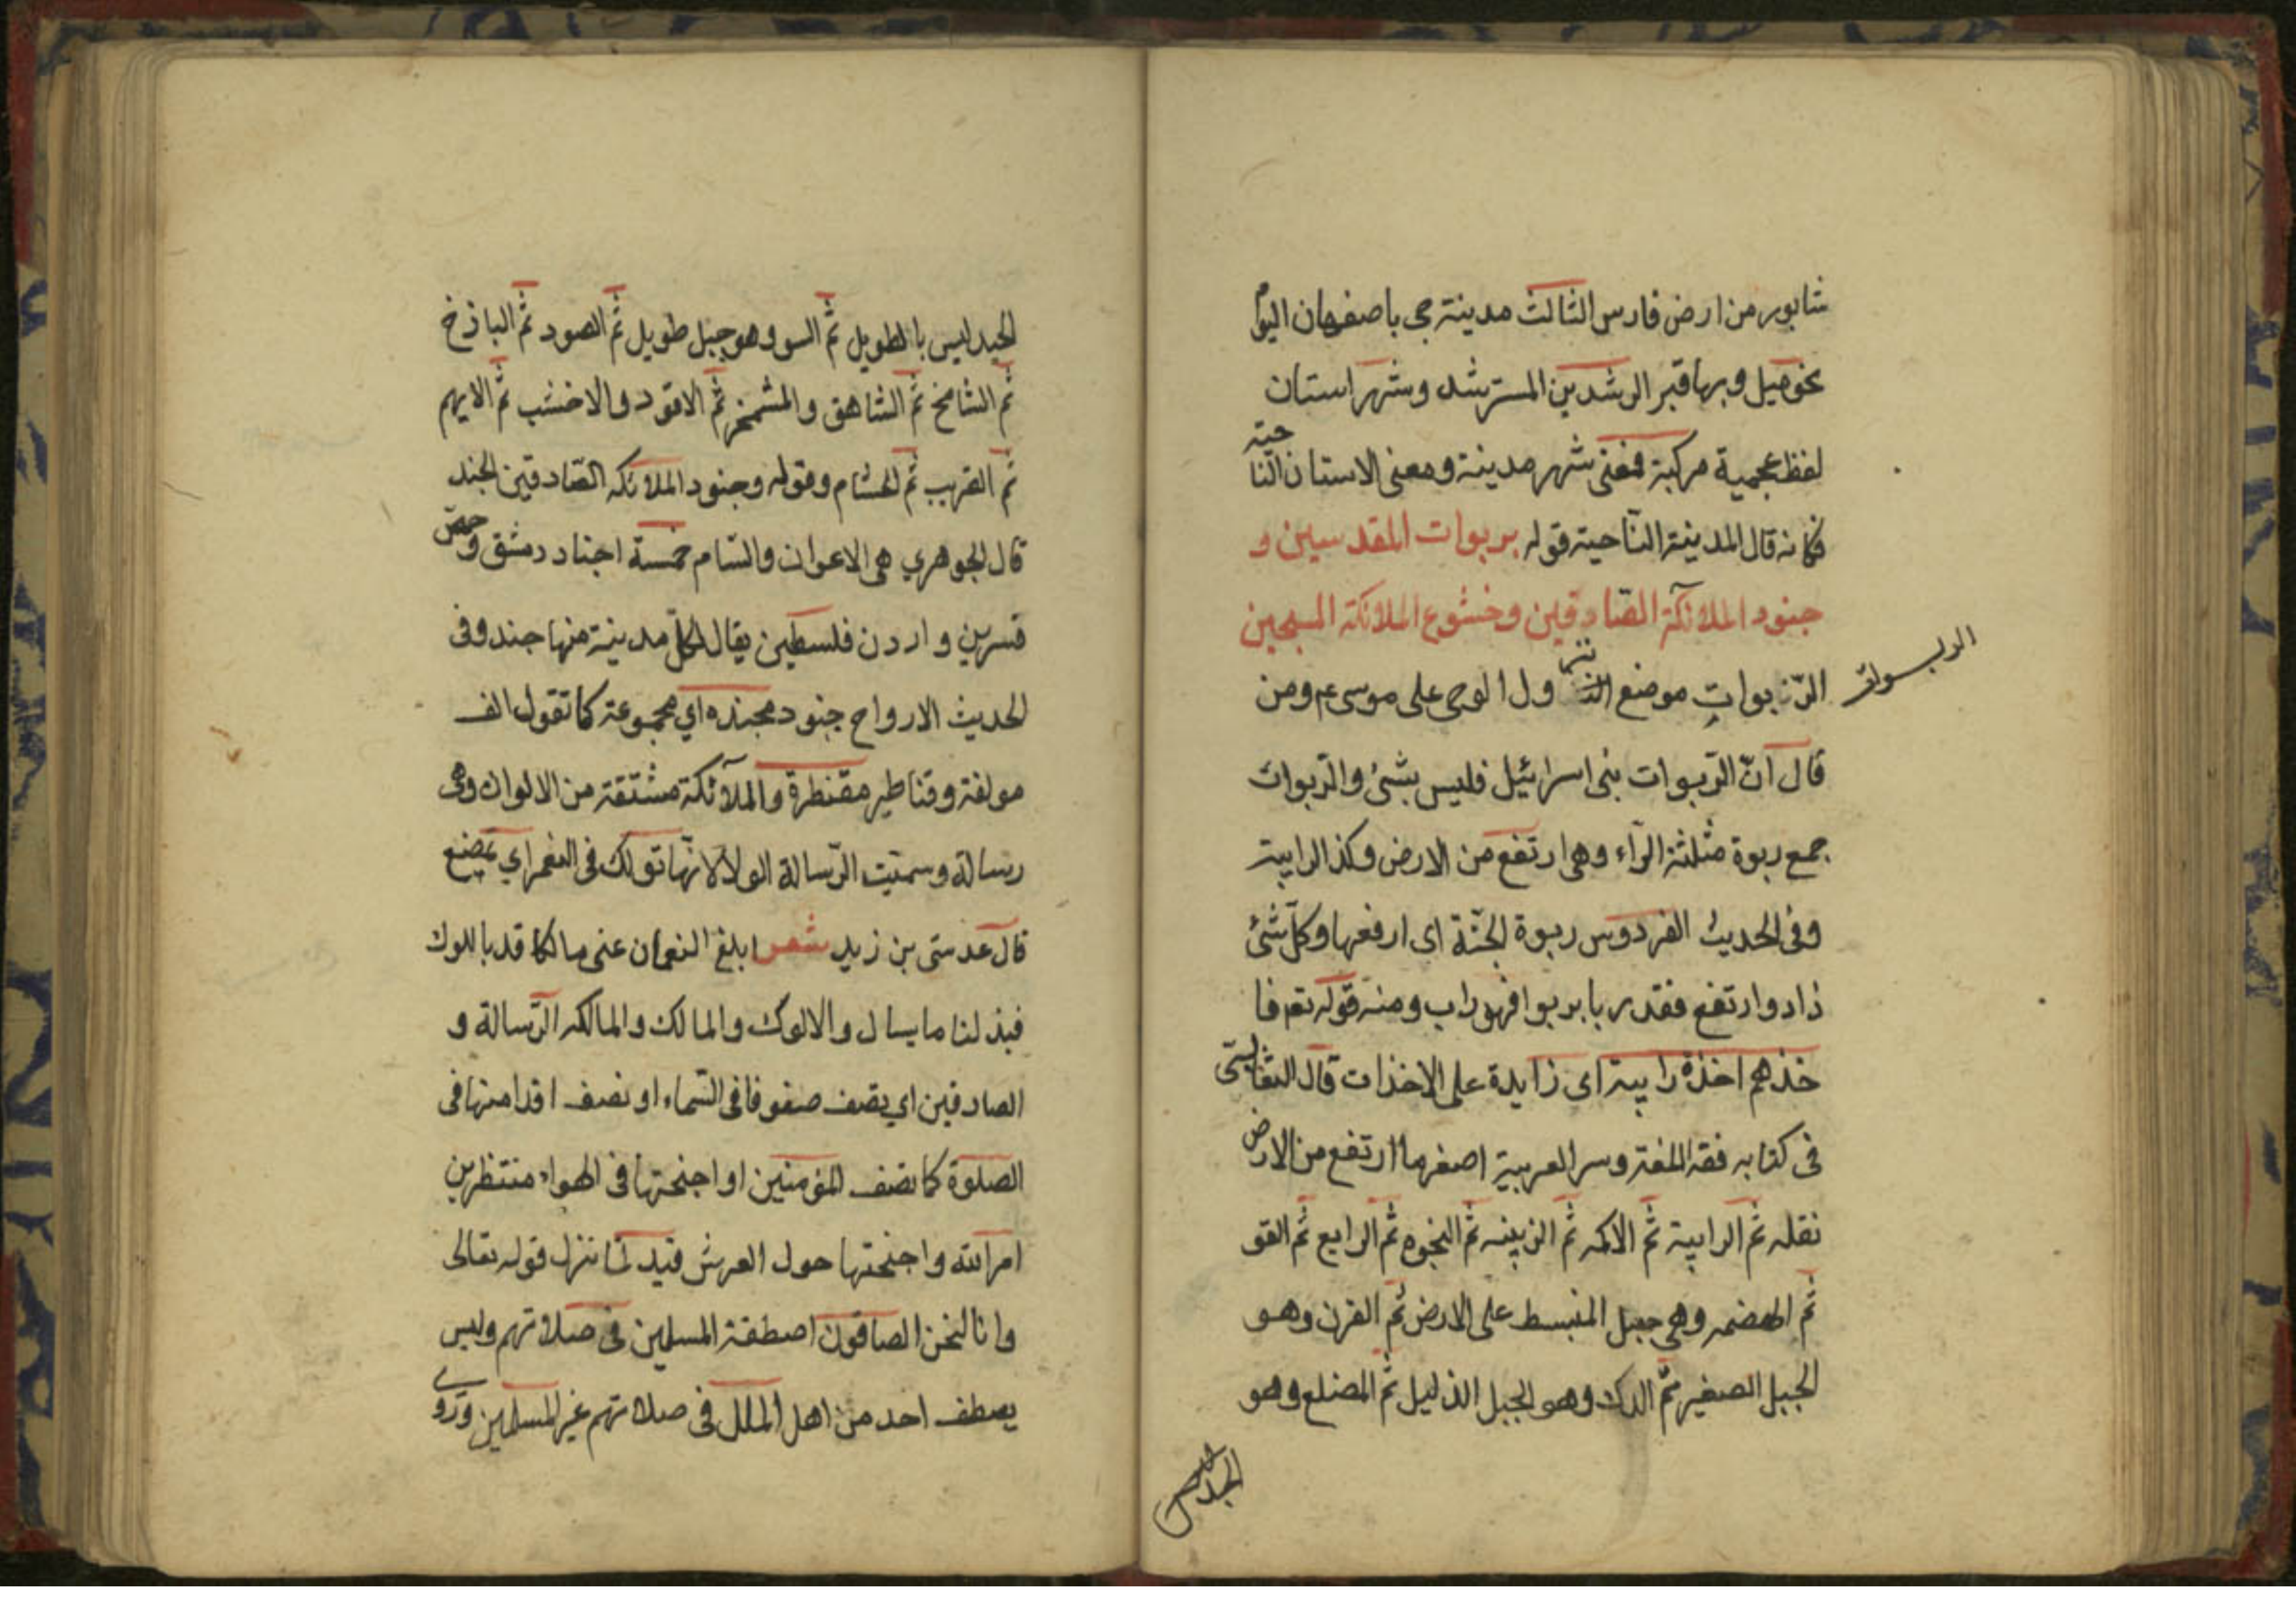 شابور من ارض فارس الثالث مدينة جى باصفهان اليوم
نحو ميل وبها قبر الرشد بن المسترشد وشهراستان
لفظ عجمية مركبة فمعنى شهر مدينة ومعنى الاستان النا
حية
فكانه قال المدينة الناحية قوله بربوات المقدسين و
جنود الملائكة الصادقين وخشوع الملائكة المسبحين
الربوات
الربوات موضع ول الوحى على موسى عم ومن
قال انّ الرّبوات بنى اسرائيل فليس بشئ والرّبوات
جمع ربوة مثلثة الرّاء وهى ارتفع من الارض وكذا الرابية
وفى الحديث الفردوس ربوة الجنّة اى ارفعها وكلّ شئ
زاد وارتفع فقد ربا يربوا فهو راب ومنه قوله تعم فا
خذهم اخذة رابية اى زايدة على الاخذات قال الثعالبى
فى كتابه فقه اللغة وسر العربية اصغر ما ارتفع من الارض
نقله ثم الرابية ثم الاكمه ثم الزبيه ثم النجوه ثم الرايع ثم القو
ثم الهضمه وهى جبل المنبسط على الارض ثم القرن وهو
الجبل الصغير ثم الدك وهو الجبل الذليل ثم المضلع وهو
الجبد ليس
الجبد ليس با الطويل ثم السو وهو جبل طويل ثم الصود ثم الباذخ
ثم الشامخ ثم الشاهق والمشمخر ثم الاقود والاخشب ثم الايهم
ثم القهب ثم الخشام وقوله وجنود الملائكه الصّادقين الجند
قال الجوهري هى الاعوان والشام خمسة اجناد دمشق وحمص
قنسرين واردن فلسطين يقال لكلّ مدينة منها جند وفى
الحديث الارواح جنود مجنده اي مجموعة كما تقول الف
مولفة وقناطير مقنطرة والملآئكة مشتقة من الالواك وهى
رسالة وسميت الرّسالة الولا لانّها تولك فى الفم اي تمضغ
قال عدىّ بن زيد شعر ابلغ النعمان عنى مالكا قد بالوك
فبذ لنا ما يسال والالوك والمالك والمالكه الرّسالة و
الصادقين اي يصف صفوفا فى السّماء او نصف اقدامها فى
الصلوة كما نصف المؤمنين او اجنحتها فى الهواء منتظرين
امر الله واجنحتها حول العرش قيد لمّا نزل قوله تعالى
وانا لنحن الصافون اصطفة المسلمين فى صلاتهم وليس
يصطف احد من اهل الملل فى صلاتهم غير المسلمين وروى